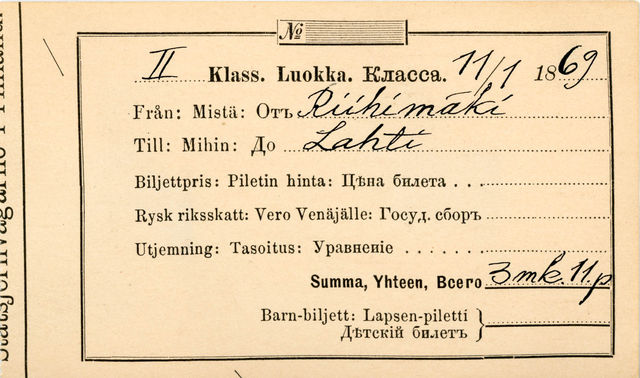 №
II Klass. Luokka. Класса. 11/1 1869
Från: Mistä: Отъ Riihimäki
Till: Mihin: До Lahti
Biljettpris: Piletin hinta: Цѣна билета . . .
Rysk riksskatt: Vero Venäjälle: Госуд. сборъ
Utjemning: Tasoitus: Уравненіе . . . . . . .
Summa, Yhteen, Всего 3 mk. 11 p
Barn-biljett: Lapsen-piletti
Дѣтскій билетъ